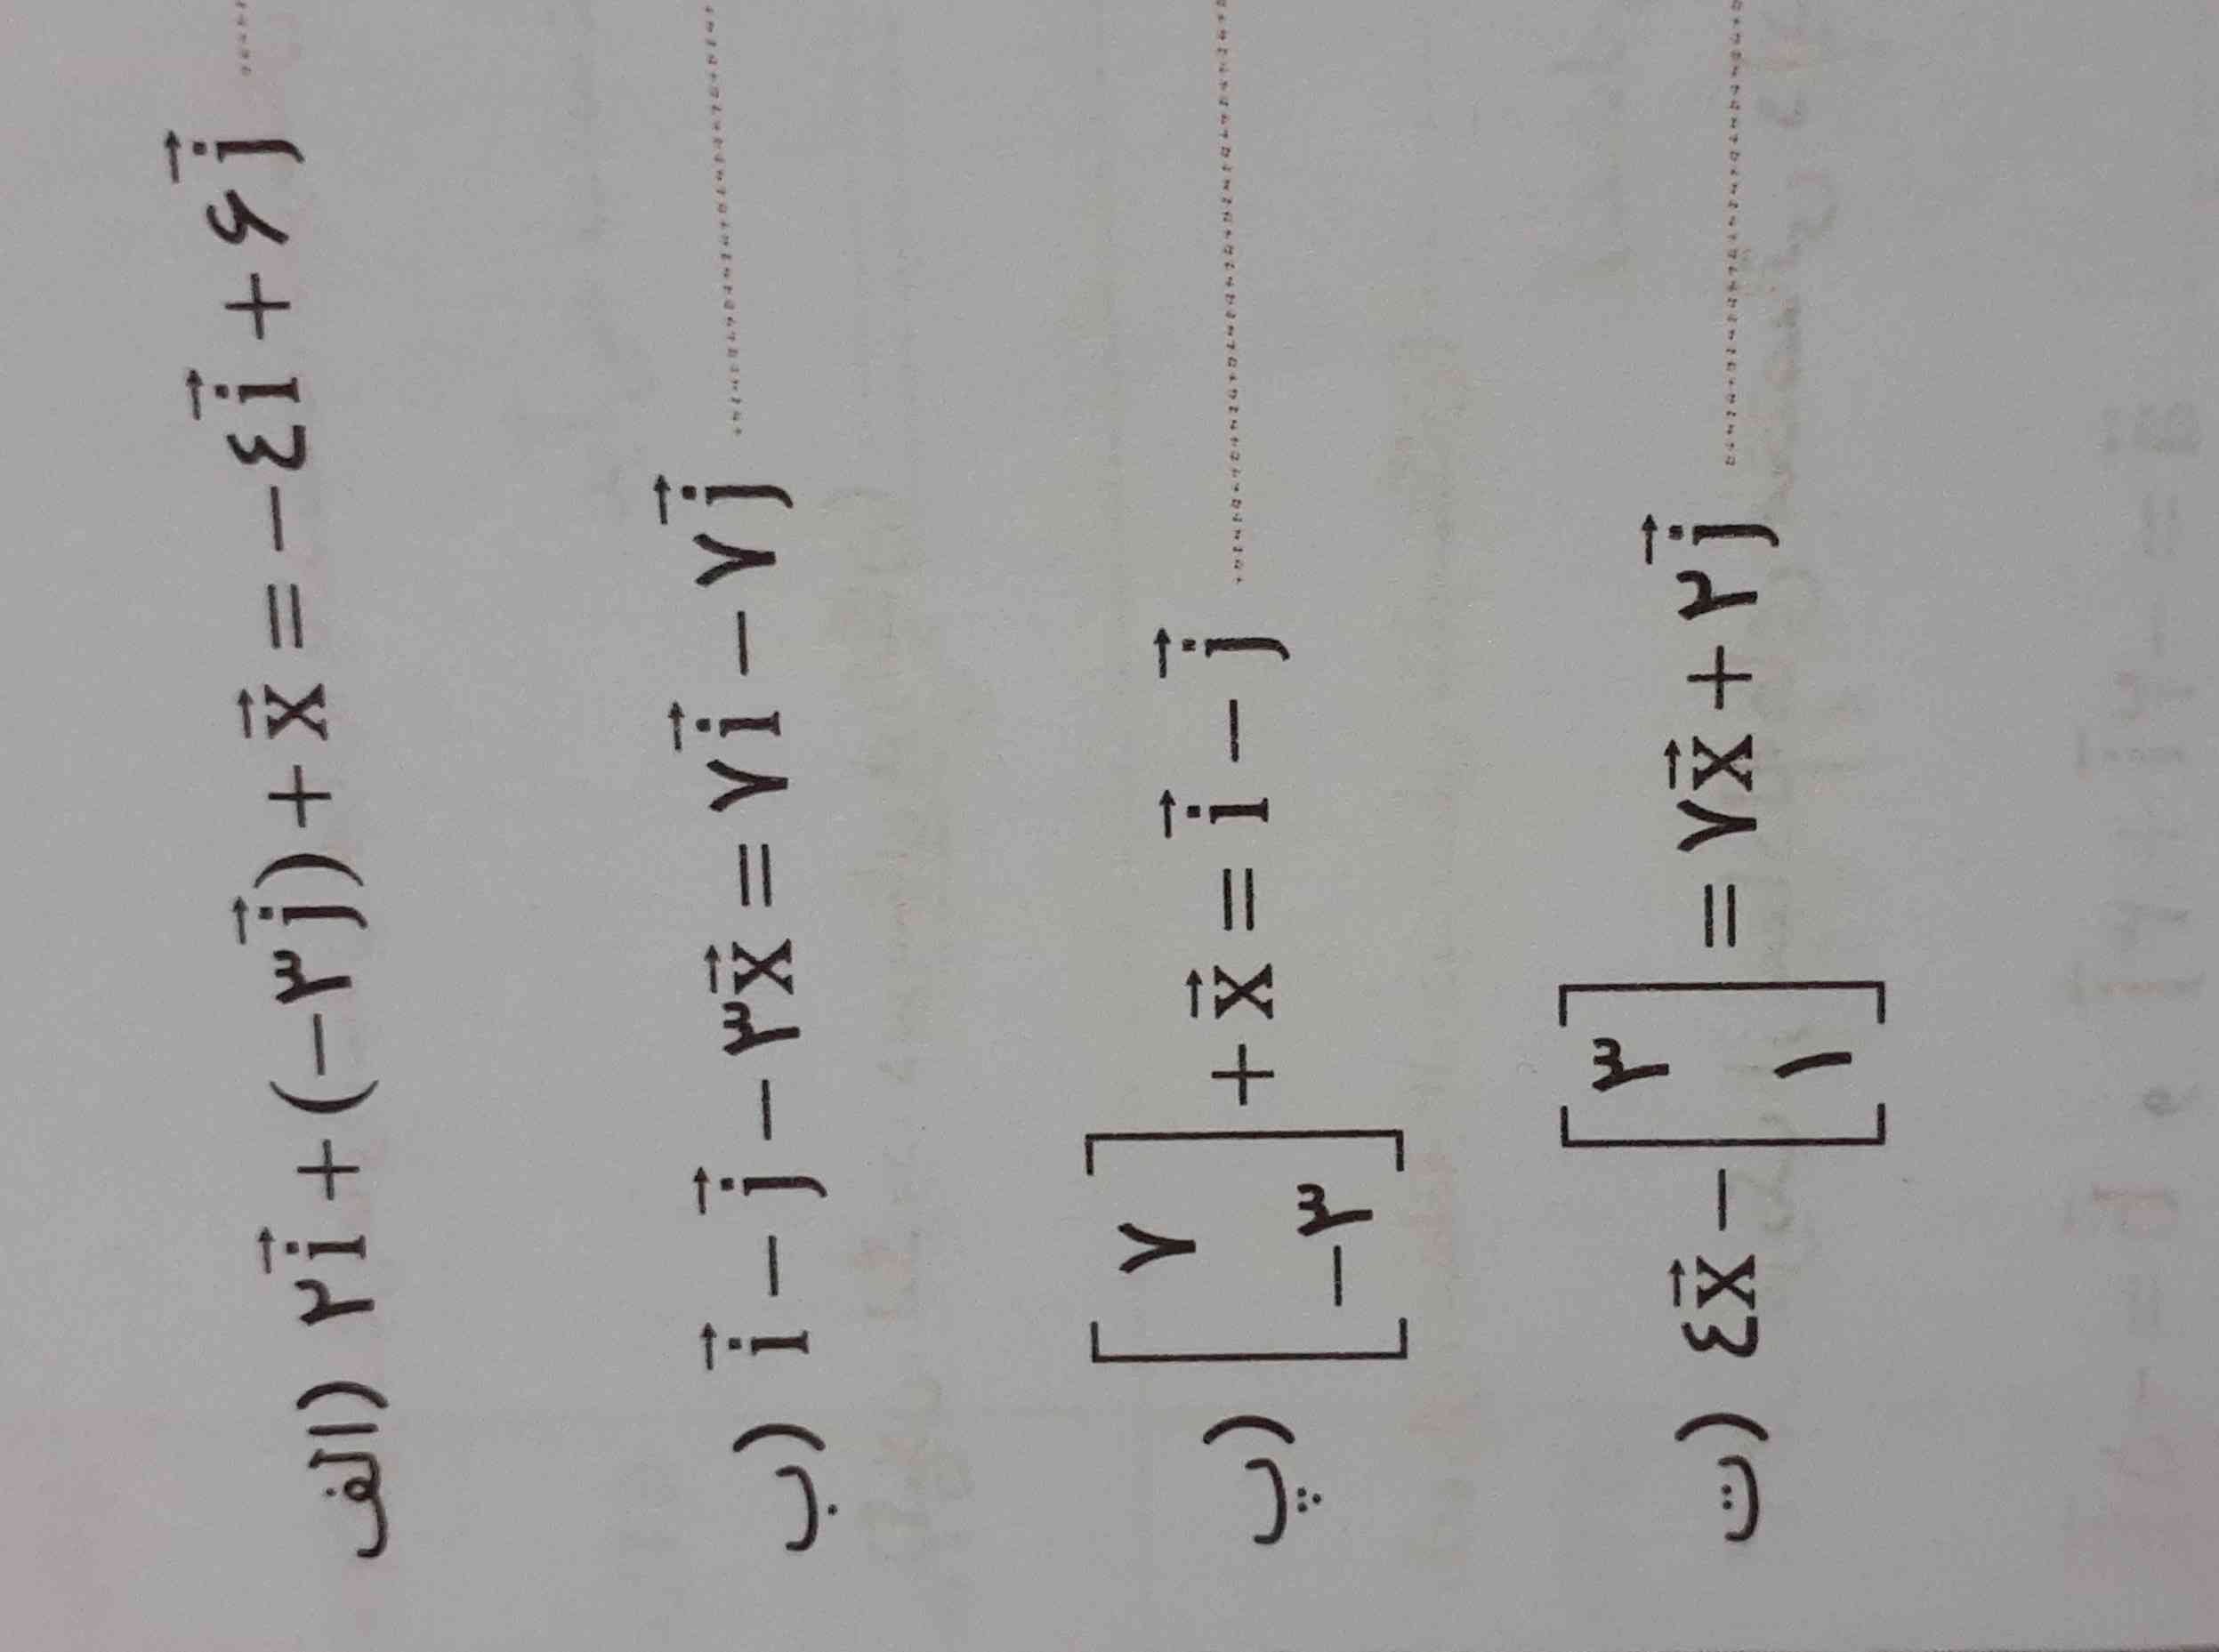 الف) ۲i⃗ + (−۳j⃗) + x⃗ = −٤i⃗ + ۶j⃗ ......
ب) i⃗ − j⃗ − ۳x⃗ = ۷i⃗ − ۷j⃗ ......
پ) [۷ −۳] + x⃗ = i⃗ − j⃗ ......
ت) ٤x⃗ − [۳ ۱] = ۷x⃗ + ۲j⃗ ......